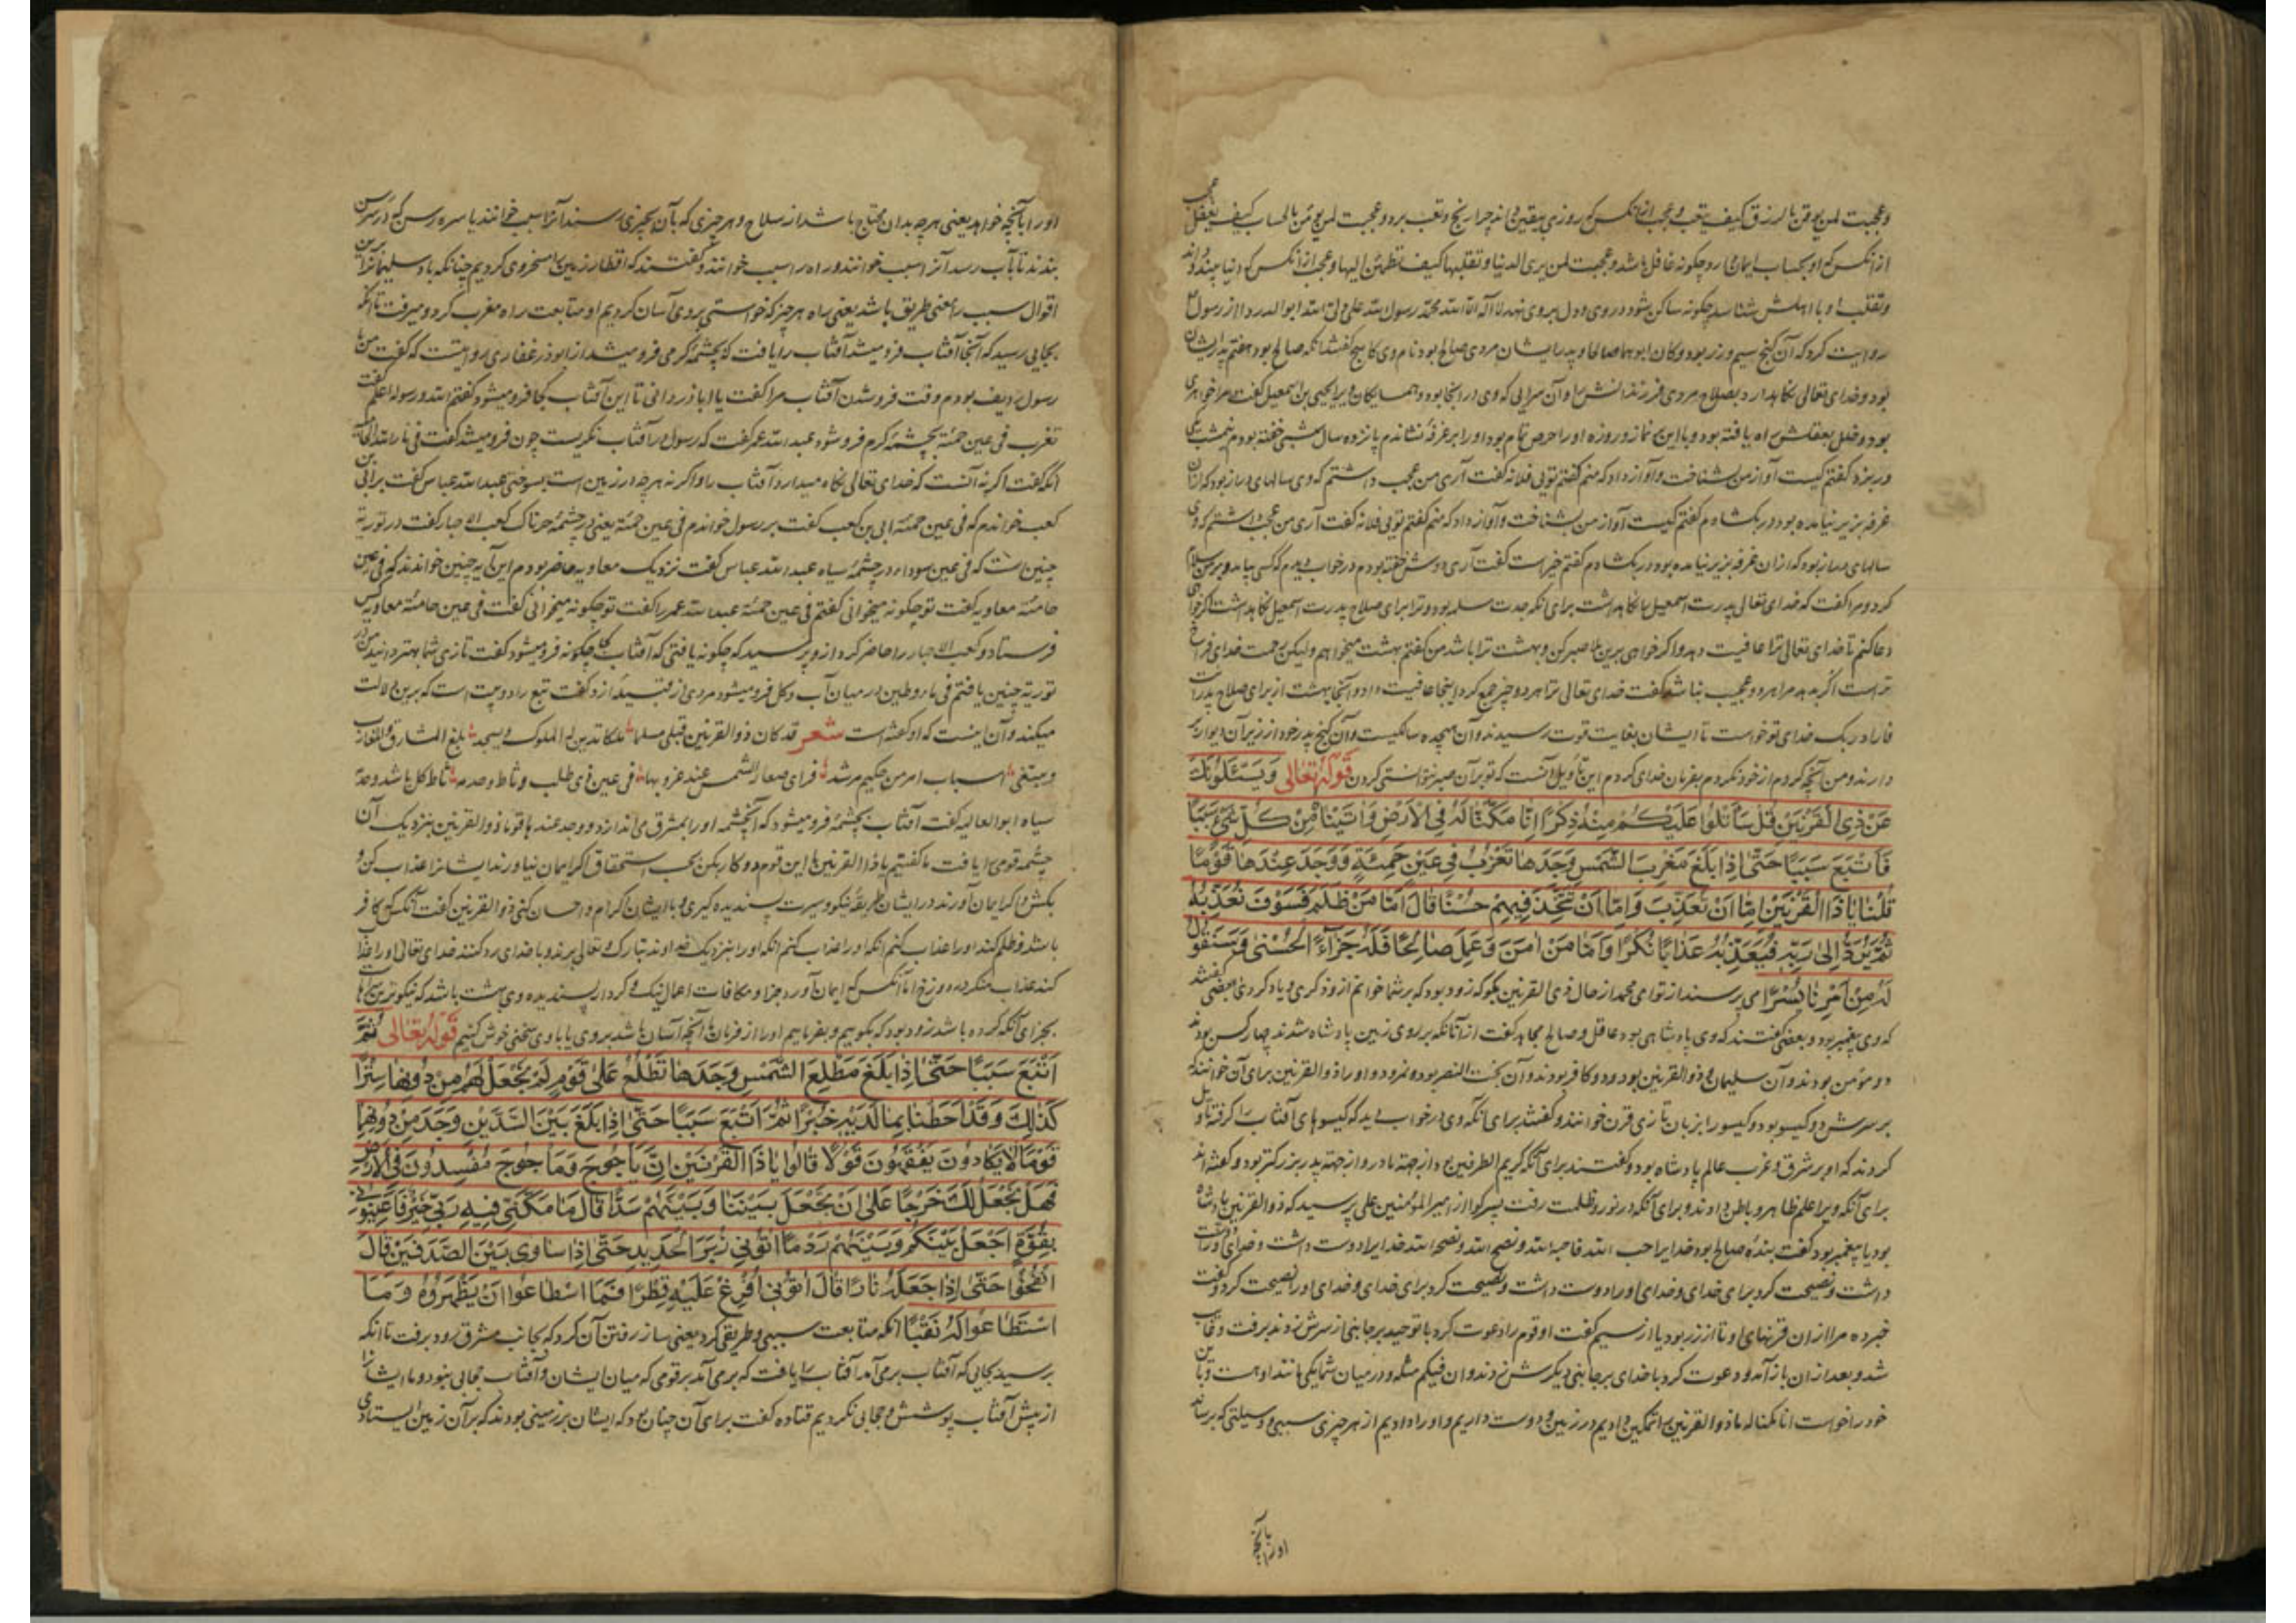 وعجبت لمن یوقن بالرزق کیف یتعب وعجب از آنکس که روزی بیقین داند چرا رنج وتعب برد وعجبت لمن یؤمن بالحساب کیف یغفل عجب
از آنکس که او بحساب ایمان دارد چگونه غافل باشد وعجبت لمن یری الدنیا وتقلبها کیف تطمئن الیها وعجب از آنکس که دنیا بیند و داند
وتقلب او با اهلش شناسد چگونه ساکن شود در وی و دل بر وی نهد لا اله الا الله محمد رسول الله علی ولی الله ابوالدردا از رسول
روایت کرد که آن گنج سیم و زر بود وکان ابوهما صالحا و پدر ایشان مردی صالح بود نام وی کاسح گفتند آنکه صالح بود هفتم پدر ایشان
بود و خدای تعالی نگاه دارد بصلاح مردی فرزندانش را و آن سرایی که وی در آنجا بود و همسایگان ویرا یحیی بن اسمعیل گفت مرا خواهری
بود و خلل بعقلش راه یافته بود و با این نماز و روزه او را حرص تمام بود او را بر غرفه نشاندم پانزده سال شبی خفته بودم نیمشب یکی
در بزد گفتم کیست آواز من بشناخت و آواز داد که منم گفتم تویی فلانه گفت آری من عجب داشتم که وی سالهای دراز بود که از آن
غرفه بزیر نیامده بود در بگشادم گفتم کیست آواز من بشناخت و آواز داد که منم گفتم تویی فلانه گفت آری من عجب داشتم که وی
سالهای دراز بود که از آن غرفه بزیر نیامده بود در بگشادم گفتم خیر است گفت آری دوش خفته بودم در خواب دیدم که کسی بیامد و بر من سلام
کرد و مرا گفت که خدای تعالی پدرت اسمعیل را نگاه داشت برای آنکه جدت سلمه بود و ترا برای صلاح پدرت اسمعیل نگاه داشت اگر خواهی
دعا کنم تا خدای تعالی ترا عافیت دهد و اگر خواهی برین بلا صبر کن و بهشت ترا باشد من گفتم بهشت میخواهم و لیکن رحمت خدای فراخ
تر است اگر بدهد مرا هر دو عجیب نباشد گفت خدای تعالی ترا هر دو چیز جمع کرد اینجا عافیت داد و آنجا بهشت از برای صلاح پدرت
فاراد ربک خدای تو خواست تا ایشان بغایت قوت رسیدند و آن هیجده سالگیست و آن گنج پدر خود از زیر آن دیوار بر
دارند و من آنچه کردم از خود نکردم بفرمان خدای کردم این تأویل آنست که تو بر آن صبر نتوانستی کردن قوله تعالی وَیَسْئَلُونَكَ
عَنْ ذِی الْقَرْنَیْنِ قُلْ سَأَتْلُوا عَلَیْكُمْ مِنْهُ ذِكْرًا اِنَّا مَكَّنَّا لَهُ فِی الْاَرْضِ وَاٰتَیْنَاهُ مِنْ كُلِّ شَیْءٍ سَبَبًا
فَاَتْبَعَ سَبَبًا حَتّٰی اِذَا بَلَغَ مَغْرِبَ الشَّمْسِ وَجَدَهَا تَغْرُبُ فِی عَیْنٍ حَمِئَةٍ وَوَجَدَ عِنْدَهَا قَوْمًا
قُلْنَا یَا ذَا الْقَرْنَیْنِ اِمَّا اَنْ تُعَذِّبَ وَاِمَّا اَنْ تَتَّخِذَ فِیهِمْ حُسْنًا قَالَ اَمَّا مَنْ ظَلَمَ فَسَوْفَ نُعَذِّبُهُ
ثُمَّ یُرَدُّ اِلٰی رَبِّهِ فَیُعَذِّبُهُ عَذَابًا نُكْرًا وَاَمَّا مَنْ اٰمَنَ وَعَمِلَ صَالِحًا فَلَهُ جَزَاءً الْحُسْنٰی وَسَنَقُولُ
لَهُ مِنْ اَمْرِنَا یُسْرًا می پرسند از تو ای محمد از حال ذی القرنین بگو که زود بود که بر شما خوانم از وی ذکری و یاد کردنی بعضی گفتند
که وی پیغمبر بود و بعضی گفتند که وی پادشاهی بود عاقل و صالح مجاهد گفت از آنانکه بر روی زمین پادشاه شدند چهار کس بودند
دو مؤمن بودند و آن سلیمان و ذوالقرنین بود و دو کافر بودند و آن بخت النصر بود و نمرود و او را ذوالقرنین برای آن خوانند که
بر سرش دو گیسو بود و گیسو را بزبان تازی قرن خوانند و گفتند برای آنکه وی در خواب دید که گیسوهای آفتاب را گرفته تاویل
کردند که او بر شرق و غرب عالم پادشاه بود و گفتند برای آنکه کریم الطرفین بود از جهة مادر و از جهة پدر بزرگتر بود و گفته اند
برای آنکه ویرا علم ظاهر و باطن دادند و برای آنکه در نور و ظلمت رفت پسر کوا از امیر المؤمنین علی پرسید که ذوالقرنین پادشاه
بود یا پیغمبر بود گفت بنده صالح بود خدایرا احب الله فاحبه الله ونصح الله ونصحه الله خدایرا دوست داشت و خدای او را دوست
داشت و نصیحت کرد برای خدای و خدای او را دوست داشت و نصیحت کرد برای خدای و خدای او را نصیحت کرد و گفت
خبر ده مرا از آن قرنهای او تا از زر بود یا از سیم گفت او قوم را دعوت کرد با توحید بر جانبی از سرش زدند برفت و غایب
شد و بعد از آن باز آمد و دعوت کرد با خدای بر جانبی دیگر سرش زدند وان فیکم مثله و در میان شما یکی مانند او هست و باین
خود را خواست انا مکنا له ما ذوالقرنین را تمکین دادیم در زمین و دوست داریم و او را دادیم از هر چیزی سببی و وسیلتی که برساند
او را بآنچه
او را بآنچه خواهد یعنی هر چه بدان محتاج باشد از سلاح و هر چیزی که بآن بچیزی رسند آنرا سبب خوانند یا سره رسن که در سر رسن
بندند تا بآب رسد آنرا سبب خوانند و راه را سبب خوانند و گفتند که اقطار زمین را مسخر وی کردیم چنانکه باد سلیمانرا برین
اقوال سبب بمعنی طریق باشد یعنی راه هر چیز که خواستی بر وی آسان کردیم او متابعت راه مغرب کرد و میرفت تا آنکه
بجایی رسید که آنجا آفتاب فرو میشد آفتاب را یافت که بچشمه گرمی فرو میشد از ابوذر غفاری روایتست که گفت من با
رسول ردیف بودم وقت فرو شدن آفتاب مرا گفت یا اباذر دانی تا این آفتاب کجا فرو میشود گفتم الله ورسوله اعلم گفت
تغرب فی عین حمئة بچشمه گرم فرو شود عبد الله عمر گفت که رسول در آفتاب نگریست چون فرو میشد گفت فی نار الله الحامیة
آنگه گفت اگر نه آنست که خدای تعالی نگاه میدارد آفتاب را و اگر نه هر چه در زمین است بسوختی عبد الله عباس گفت بر ابی بن
کعب خواندم که فی عین حمئة ابی بن کعب گفت بر رسول خواندم فی عین حمئة یعنی در چشمه حرناک کعب الاحبار گفت در توریة
چنین است که فی عین سوداء در چشمه سیاه عبد الله عباس گفت نزدیک معاویه حاضر بودم این آیه چنین خواندند که فی عین
حامئة معاویه گفت تو چگونه میخوانی گفتم فی عین حمئة عبد الله عمر را گفت تو چگونه میخوانی گفت فی عین حامئة معاویه کس
فرستاد و کعب الاحبار را حاضر کرد از و پرسید که چگونه یافتی که آفتاب چگونه فرو میشود گفت تازی شما بهتر دانید من در
توریة چنین یافتم فی ماء وطین در میان آب و گل فرو میشود مردی از قبیله ازد گفت تبع را دو بیت است که برین دلالت
میکند و آن اینست که او گفته است شعر قد کان ذوالقرنین قبلی مسلما ملکا تدین له الملوک ویسجد بلغ المشارق والمغارب
ویبتغی اسباب امر من حکیم مرشد فرای مغار الشمس عند غروبها فی عین ذی خلب وثاط حرمد ثاط گل باشد وحمأ
سیاه ابوالعالیه گفت آفتاب بچشمه فرو میشود که آن چشمه او را بمشرق می اندازد ووجد عندها قوما ذوالقرنین بنزدیک آن
چشمه قومی را یافت ما گفتیم یا ذا القرنین با این قوم دو کار بکن بحسب استحقاق اگر ایمان نیاورند ایشانرا عذاب کن و
بکش و اگر ایمان آورند در ایشان طریقه نیکو و سیرت پسندیده گیری و با ایشان اکرام و احسان کنی ذوالقرنین گفت آنکس که کافر
باشد و ظلم کند او را عذاب کنم آنگه او را عذاب کنم آنگه او را بنزدیک خداوند تبارک و تعالی برند و با خدای رد کنند خدای تعالی او را عذاب
کند عذاب منکر در دوزخ اما آنکس که ایمان آورد جزا و مکافات اعمال نیک و کردار پسندیده وی بهشت باشد که نیکوترین جایها
بجزای آنکه کرده باشد زود بود که بگوییم و بفرماییم او را از فرمان ما آنچه آسان باشد بر وی یا با وی سخنی خوش گنیم قوله تعالی ثُمَّ
اَتْبَعَ سَبَبًا حَتّٰی اِذَا بَلَغَ مَطْلِعَ الشَّمْسِ وَجَدَهَا تَطْلُعُ عَلٰی قَوْمٍ لَمْ نَجْعَلْ لَهُمْ مِنْ دُونِهَا سِتْرًا
كَذٰلِكَ وَقَدْ اَحَطْنَا بِمَا لَدَیْهِ خُبْرًا ثُمَّ اَتْبَعَ سَبَبًا حَتّٰی اِذَا بَلَغَ بَیْنَ السَّدَّیْنِ وَجَدَ مِنْ دُونِهِمَا
قَوْمًا لَا یَكَادُونَ یَفْقَهُونَ قَوْلًا قَالُوا یَا ذَا الْقَرْنَیْنِ اِنَّ یَاْجُوجَ وَمَاْجُوجَ مُفْسِدُونَ فِی الْاَرْضِ
فَهَلْ نَجْعَلُ لَكَ خَرْجًا عَلٰی اَنْ تَجْعَلَ بَیْنَنَا وَبَیْنَهُمْ سَدًّا قَالَ مَا مَكَّنِّی فِیهِ رَبِّی خَیْرٌ فَاَعِینُونِی
بِقُوَّةٍ اَجْعَلْ بَیْنَكُمْ وَبَیْنَهُمْ رَدْمًا اٰتُونِی زُبَرَ الْحَدِیدِ حَتّٰی اِذَا سَاوٰی بَیْنَ الصَّدَفَیْنِ قَالَ
انْفُخُوا حَتّٰی اِذَا جَعَلَهُ نَارًا قَالَ اٰتُونِی اُفْرِغْ عَلَیْهِ قِطْرًا فَمَا اسْطَاعُوا اَنْ یَظْهَرُوهُ وَمَا
اسْتَطَاعُوا لَهُ نَقْبًا آنگه متابعت سببی و طریقی کرد یعنی ساز رفتن آن کرد که بجانب مشرق رود برفت تا آنکه
برسید بجایی که آفتاب بر می آمد آفتاب را یافت که بر می آمد بر قومی که میان ایشان و آفتاب حجابی نبود و ما ایشانرا
از پیش آفتاب پوشش و حجابی نکردیم قتاده گفت برای آن چنان بود که ایشان بر زمینی بودند که بر آن زمین ایستادی